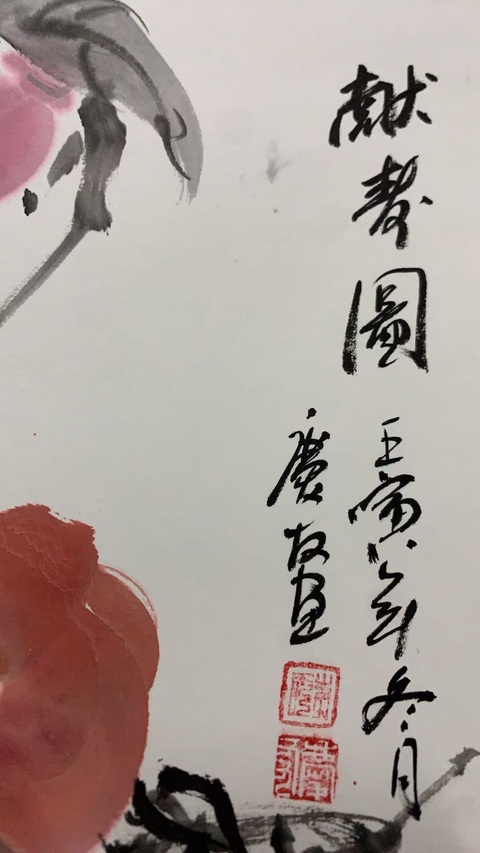 獻壽圖
壬寅年冬月
慶友畫